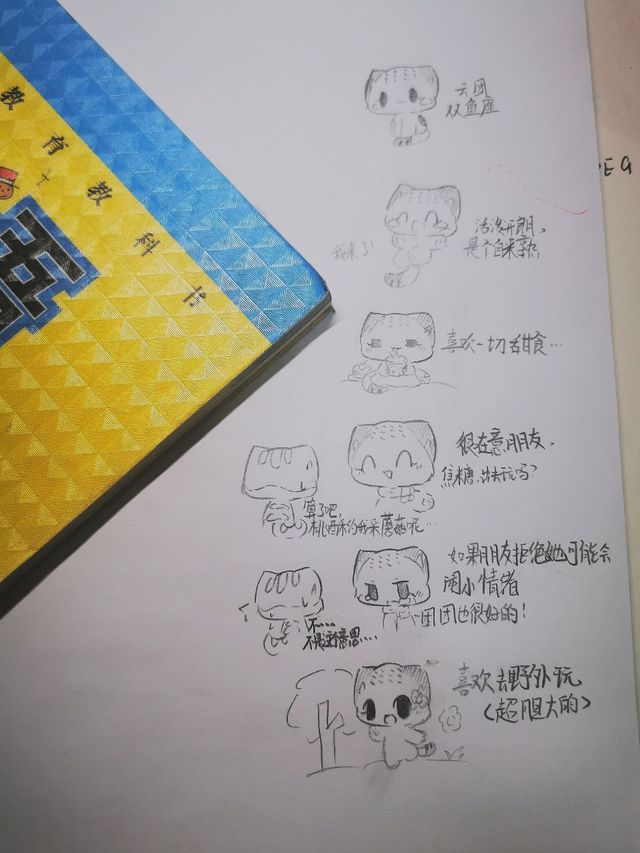 教育教科书
云团
双鱼座
我来了！
活泼开朗、
是个自来熟
喜欢一切甜食…
很在意朋友、
焦糖、出去玩吗？
算了吧，
桃酒味约我采蘑菇呢…
如果朋友拒绝她可能会
闹小情绪
团团也很好的！
不……
不是这个意思……
喜欢去野外玩
（超胆大的）